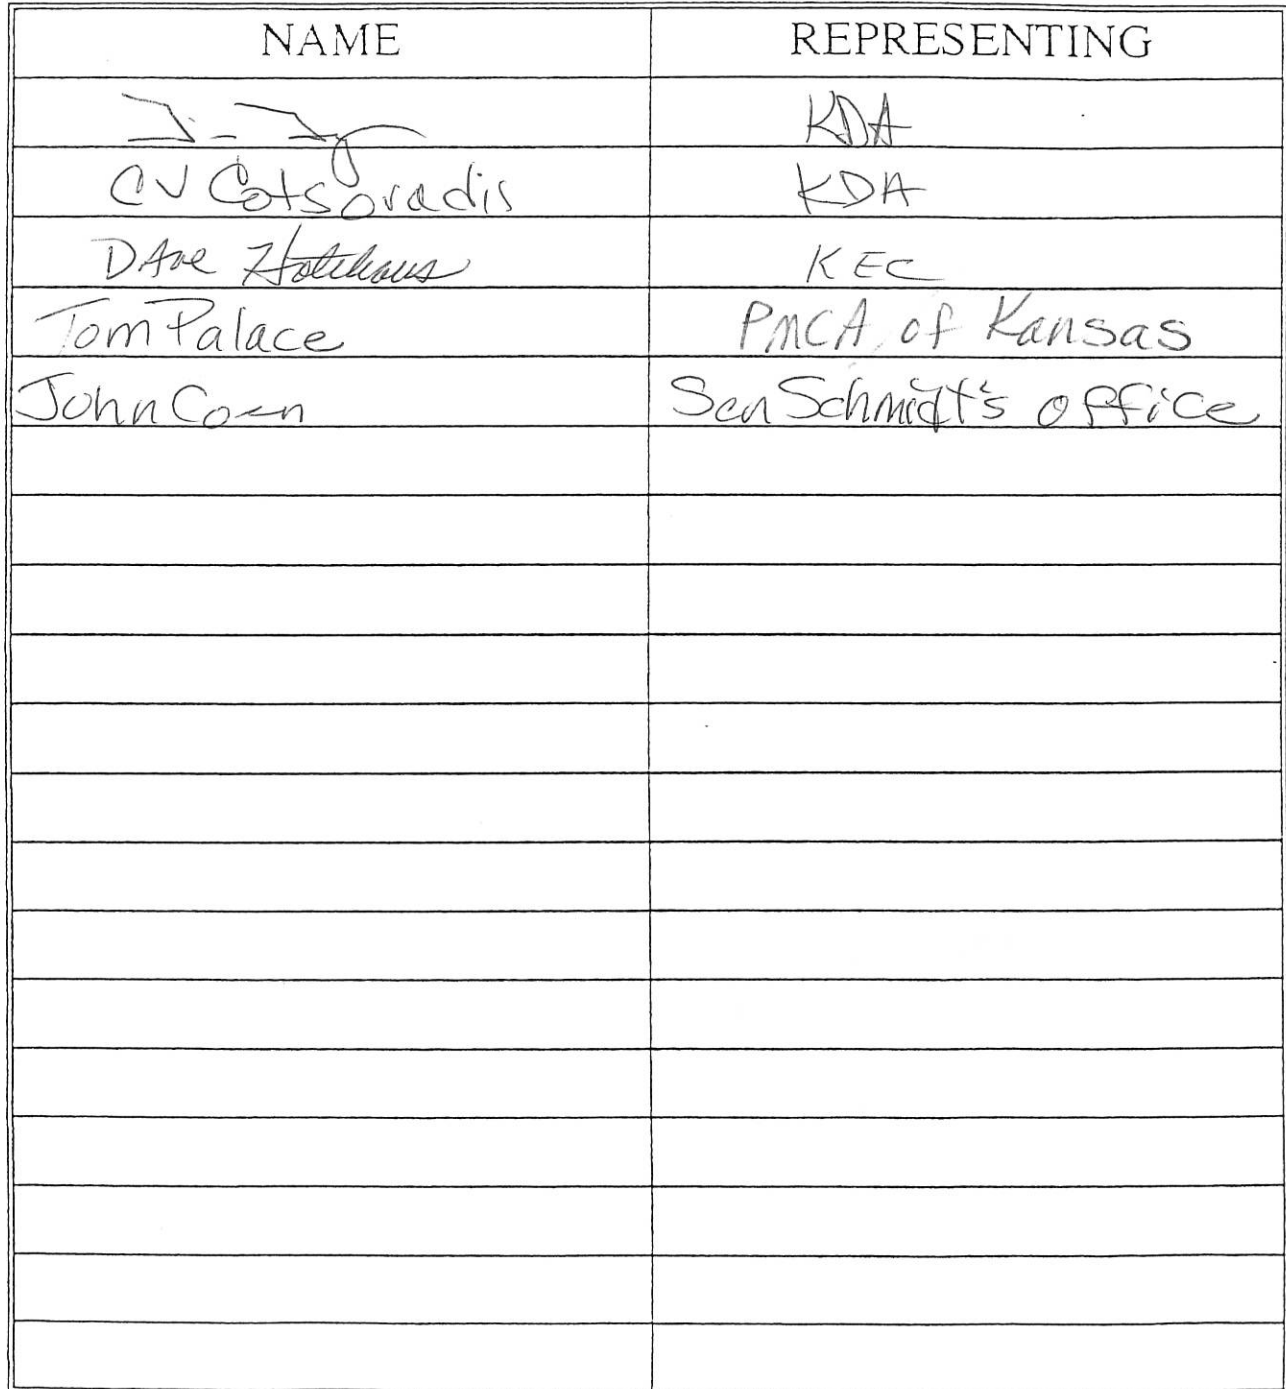 NAME REPRESENTING
KDA
CV Cotsoradis KDA
DAve Holthaus KEC
Tom Palace PMCA of Kansas
John Coen Sen Schmidt's office